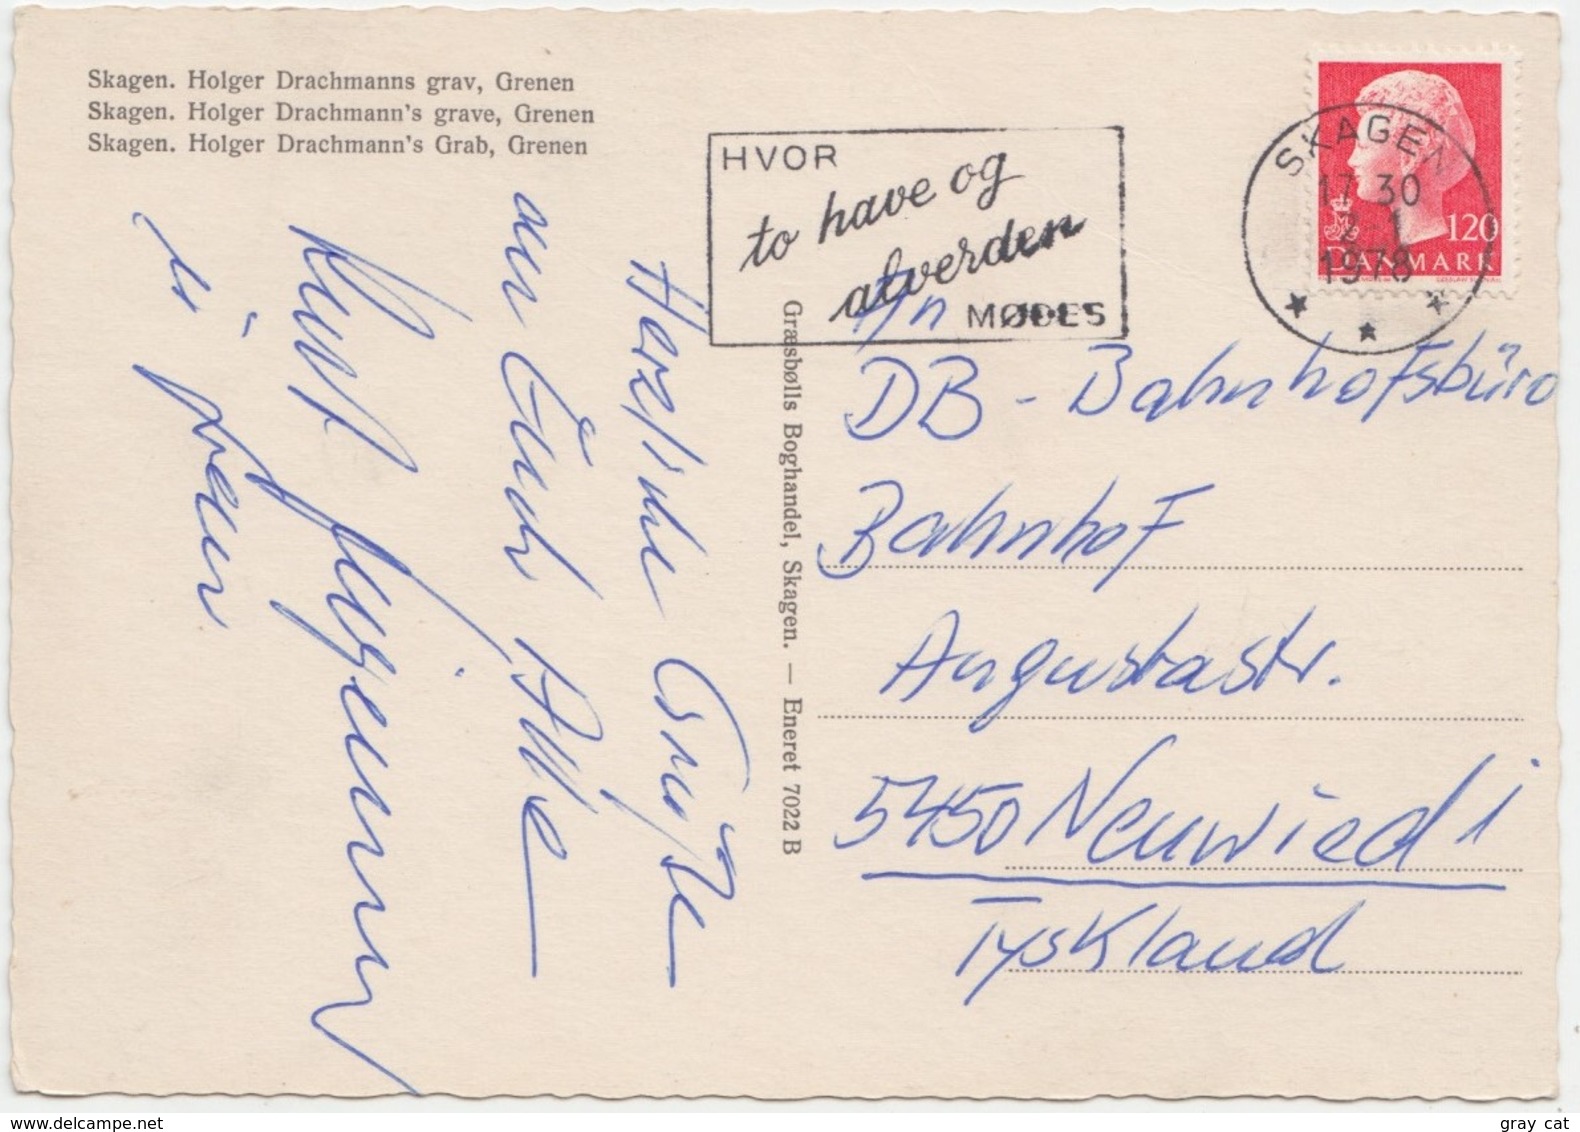 Skagen. Holger Drachmanns grav, Grenen
Skagen. Holger Drachmann's grave, Grenen
Skagen. Holger Drachmann's Grab, Grenen
HVOR
to have og
alverden
MØDES
SKAGEN
17 30
2 1
1978
120
DANMARK
An
DB - Bahnhofsbüro
Bahnhof
Augustastr.
5450 Neuwied 1
Tyskland
Græsbølls Boghandel, Skagen. — Eneret 7022 B
Herzliche Grüße
an Euch Alle
www.delcampe.net
gray cat